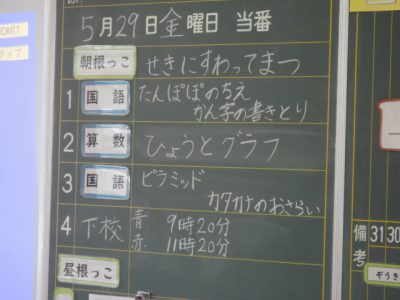 HDMI1
ティブ
5月29日金曜日 当番
朝根っこ せきにすわってまつ
1 国語 たんぽぽのちえ
かん字の書きとり
2 算数 ひょうとグラフ
3 国語 ピラミッド
カタカナのおさらい
4 下校 青 9時20分
赤 11時20分
昼根っこ
備考 31 30
ぞうき